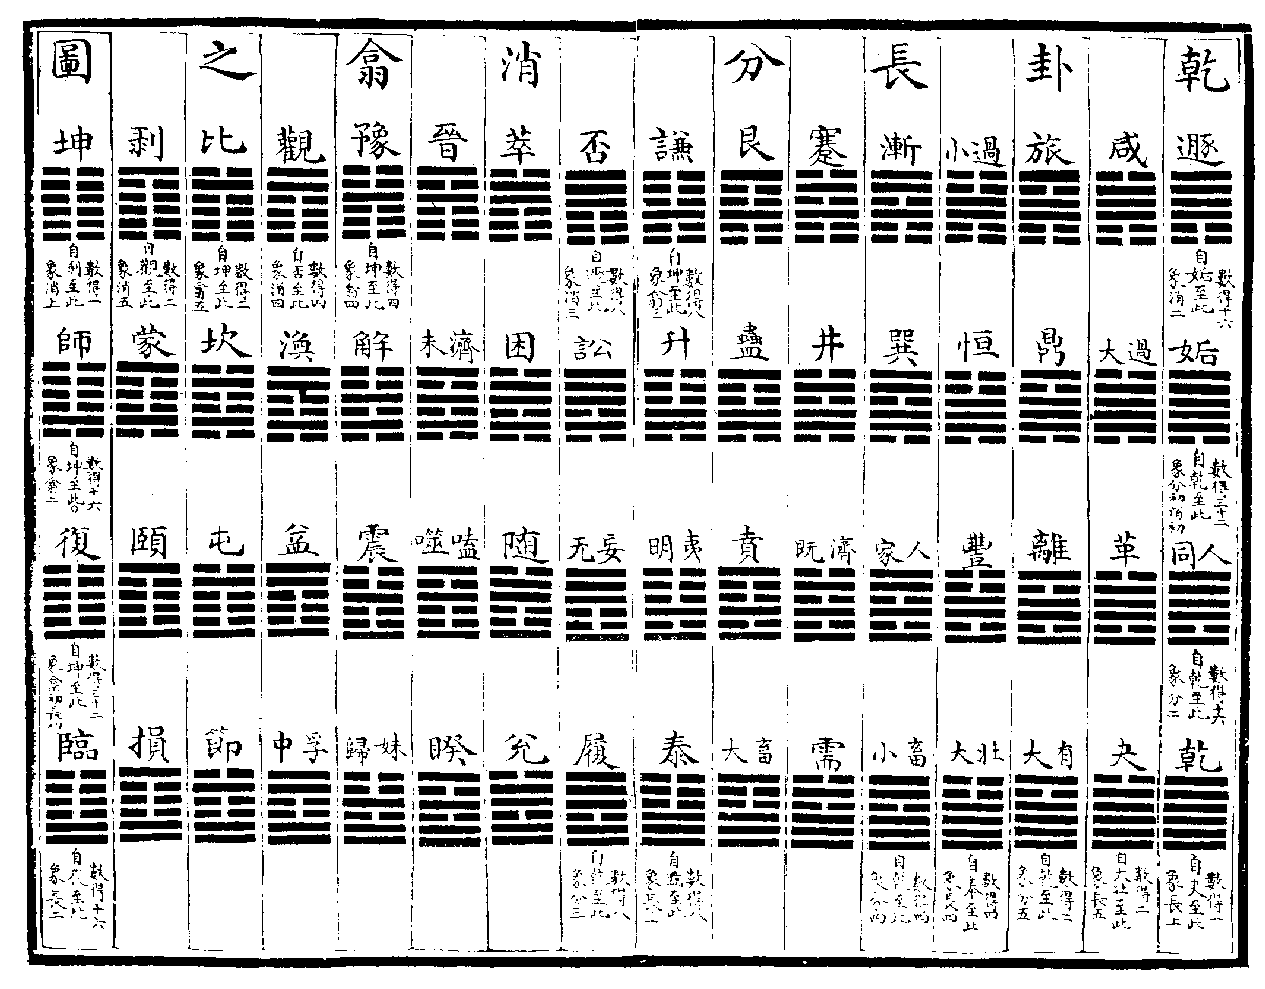 乾卦長分消翕之圖
遯 咸 旅 小過 漸 蹇 艮 謙 否 萃 晉 豫 觀 比 剝 坤
數得十六
自姤至此
象消二
數得八
自坤至此
象翕三
數得八
自遯至此
象消三
數得四
自坤至此
象翕四
數得四
自否至此
象消四
數得二
自坤至此
象翕五
數得二
自觀至此
象消五
數得一
自剝至此
象消上
姤 大過 鼎 恒 巽 井 蠱 升 訟 困 未濟 解 渙 坎 蒙 師
數得三十二
自乾至此
象分初消初
數得十六
自坤至此
象翕二
同人 革 離 豐 家人 既濟 賁 明夷 无妄 随 噬嗑 震 益 屯 頤 復
數得十六
自乾至此
象分二
數得三十二
自坤至此
象翕初長初
乾 夬 大有 大壯 小畜 需 大畜 泰 履 兌 睽 歸妹 中孚 節 損 臨
數得一
自夬至此
象長上
數得二
自大壯至此
象長五
數得二
自乾至此
象分五
數得四
自泰至此
象長四
數得四
自乾至此
象分四
數得八
自臨至此
象長三
數得八
自乾至此
象分三
數得十六
自復至此
象長二